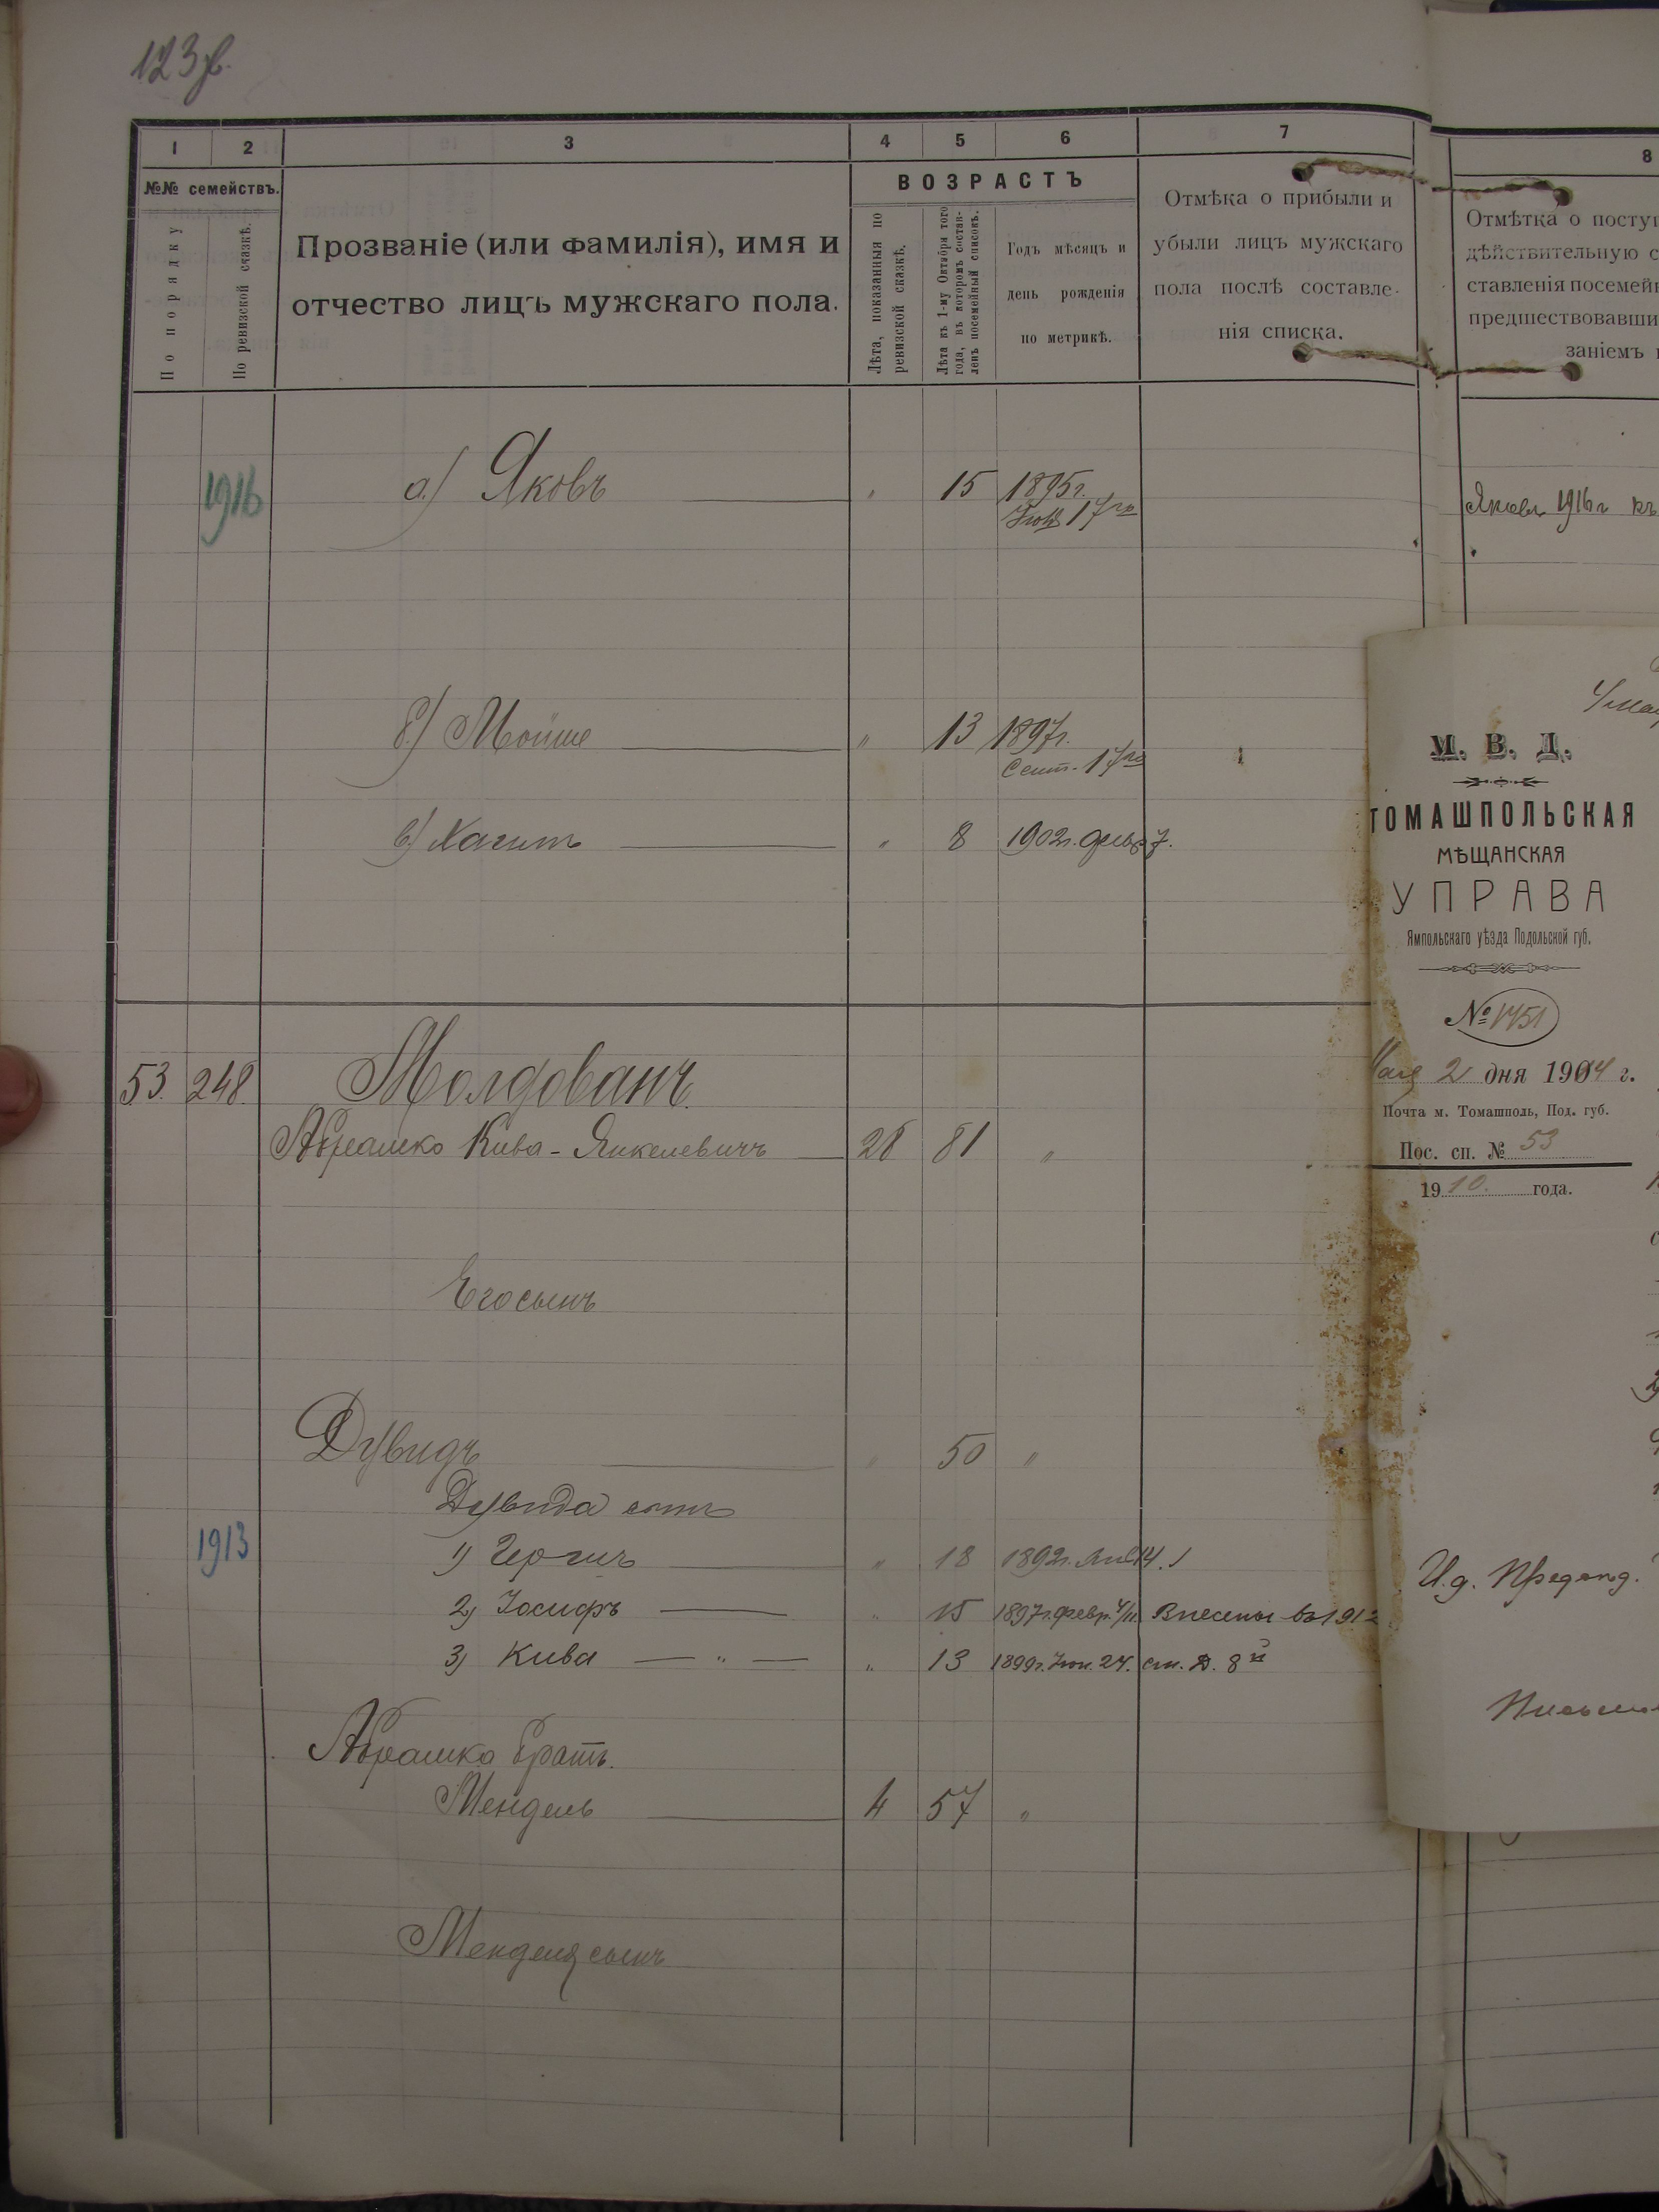 123
1 2 3 4 5 6 7
№№ семействъ.
По порядку
По ревизской сказкѣ.
Прозваніе (или фамилія), имя и
отчество лицъ мужскаго пола.
ВОЗРАСТЪ
Лѣта, показанныя по
ревизской сказкѣ.
Лѣта къ 1-му Октября того
года, въ которомъ состав-
ленъ посемейный списокъ.
Годъ мѣсяцъ и
день рожденія
по метрикѣ.
Отмѣка о прибыли и
убыли лицъ мужскаго
пола послѣ составле-
нія списка.
1916 а) Яковъ " 15 1895г.
17го
б) Мойше " 13 1897г.
Сент. 17го
в) " 8 1902г. 7.
53. 248. Молдованъ
Абрашко Кива-Янкелевичъ 28 81 "
Его сынъ
Дувидъ " 50 "
Дувида сынъ
1913 1) Гершъ " 18 1892г. 14.
2) Іосифъ " 15 1897г. февр. 4/11. Внесены въ 1912
3) Кива — " — " 13 1899г. Іюн. 24. ст. Д. 8й
Абрашко братъ.
Мендель 4 57 "
Менделя сынъ
8
Отмѣтка о посту
дѣйствительную с
ставленія посемей
предшествовавши
заніемъ
Яковъ 1916г къ
М. В. Д.
ТОМАШПОЛЬСКАЯ
МѢЩАНСКАЯ
УПРАВА
Ямпольскаго уѣзда Подольской губ.
№ 1451
2 дня 1914 г.
Почта м. Томашполь, Под. губ.
Пос. сп. № 53
1910. года.
И.д. Предсѣд.
Письмо